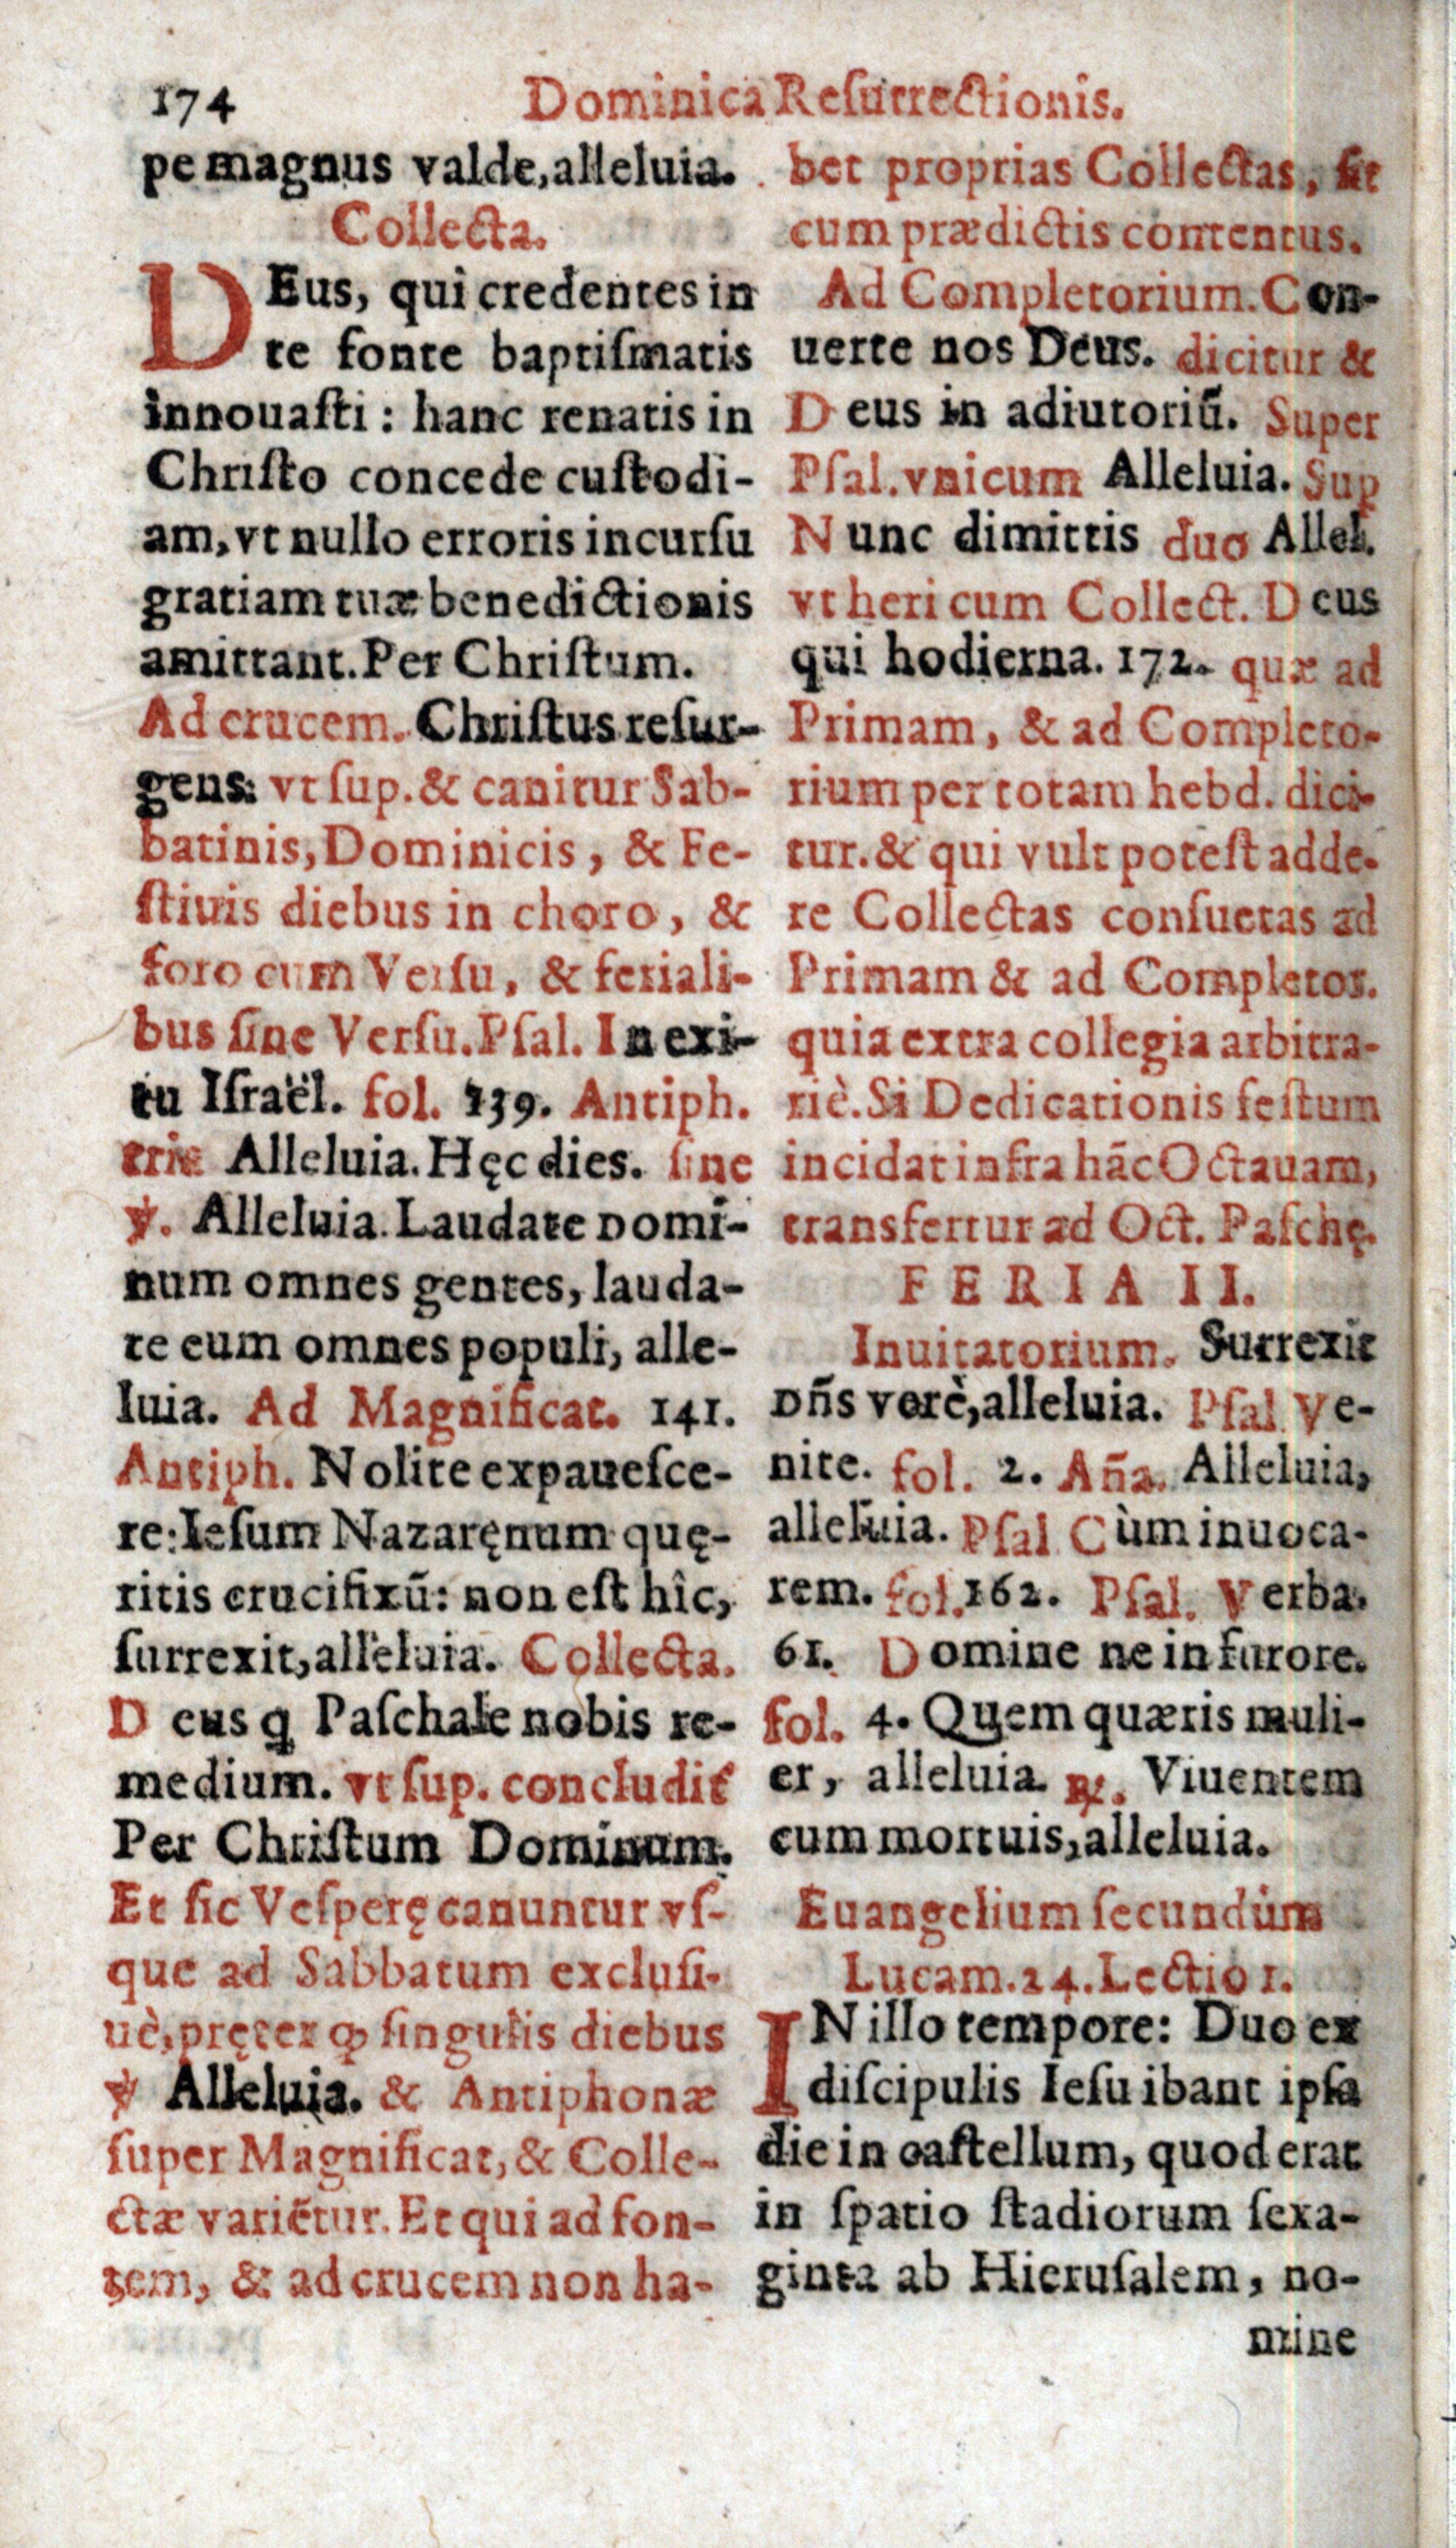 174
Dominica Reſurrectionis.
pe magnus valde, alleluia.
Collecta.
DEus, qui credentes in
te fonte baptiſmatis
innouaſti: hanc renatis in
Chriſto concede cuſtodi-
am, vt nullo erroris incurſu
gratiam tuæ benedictionis
amittant. Per Chriſtum.
Ad crucem. Chriſtus reſur-
gens: vt ſup. & canitur Sab-
batinis, Dominicis, & Fe-
ſtiuis diebus in choro, &
foro cum Verſu, & feriali-
bus ſine Verſu. Pſal. In exi-
tu Iſraël. fol. 139. Antiph.
tria Alleluia. Hęc dies. ſine
℣. Alleluia. Laudate Domi-
num omnes gentes, lauda-
te eum omnes populi, alle-
luia. Ad Magnificat. 141.
Antiph. Nolite expaueſce-
re: Ieſum Nazaręnum quę-
ritis crucifixū: non eſt hîc,
ſurrexit, alleluia. Collecta.
Deus q Paſchale nobis re-
medium. vt ſup. concludit̃
Per Chriſtum Dominum.
Et ſic Veſperę canuntur vſ-
que ad Sabbatum excluſi-
uè, pręter ꝙ ſingulis diebus
℣ Alleluia. & Antiphonæ
ſuper Magnificat, & Colle-
ctæ variẽtur. Et qui ad fon-
tem, & ad crucem non ha-
bet proprias Collectas, ſit
cum prædictis contentus.
Ad Completorium. Con-
uerte nos Deus. dicitur &
Deus in adiutoriū. Super
Pſal. vnicum Alleluia. Sup
Nunc dimittis duo Allel.
vt heri cum Collect. Deus
qui hodierna. 172. quæ ad
Primam, & ad Completo-
rium per totam hebd. dici-
tur. & qui vult poteſt adde-
re Collectas conſuetas ad
Primam & ad Completor.
quia extra collegia arbitra-
riè. Si Dedicationis feſtum
incidat infra hāc Octauam,
transfertur ad Oct. Paſchę.
FERIA II.
Inuitatorium. Surrexit
Dn̄s verè, alleluia. Pſal Ve-
nite. fol. 2. Añа. Alleluia,
alleluia. Pſal Cùm inuoca-
rem. fol. 162. Pſal. Verba.
61. Domine ne in furore.
fol. 4. Quem quæris muli-
er, alleluia. ℞. Viuentem
cum mortuis, alleluia.
Euangelium ſecundùm
Lucam. 24. Lectio 1.
IN illo tempore: Duo ex
diſcipulis Ieſu ibant ipſa
die in caſtellum, quod erat
in ſpatio ſtadiorum ſexa-
ginta ab Hieruſalem, no-
mine